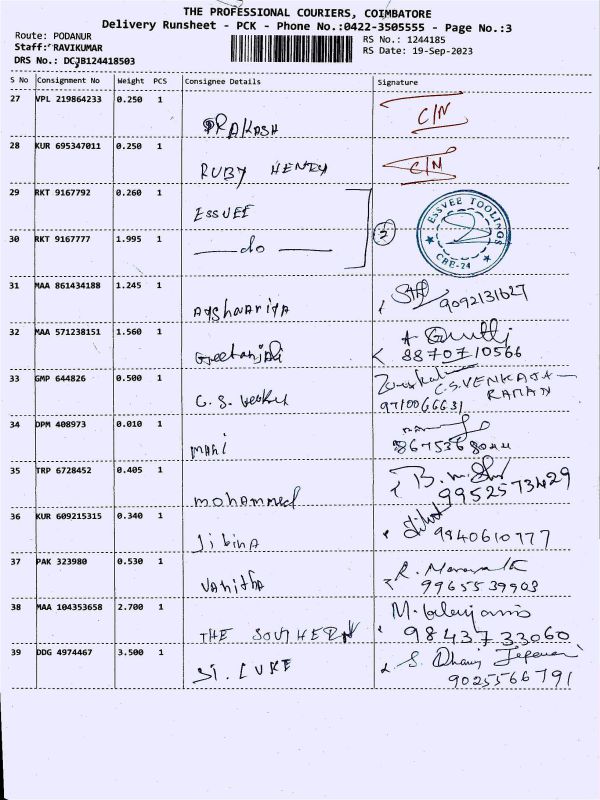 THE PROFESSIONAL COURIERS, COIMBATORE
Delivery Runsheet - PCK - Phone No.:0422-3505555 - Page No.:3
Route: PODANUR
RS No.: 1244185
Staff: RAVIKUMAR
RS Date: 19-Sep-2023
DRS No.: DCJB124418503
S No Consignment No Weight PCS Consignee Details Signature
27 VPL 219864233 0.250 1
PRAKASH C/N
28 KUR 695347011 0.250 1
RUBY HENRY C/N
29 RKT 9167792 0.260 1
ESSVEE
ESSVEE TOOLINGS
CBE-24
2
30 RKT 9167777 1.995 1
do
31 MAA 861434188 1.245 1
Ayshwariya 9092131627
32 MAA 571238151 1.560 1
Geetanjali 8870710566
33 GMP 644826 0.500 1
C.S. Venkat C.S.VENKATA-
RAMAN
9710066631
34 DPM 408973 0.010 1
Mani
35 TRP 6728452 0.405 1
mohammed 9952573429
36 KUR 609215315 0.340 1
Jibina 9840610777
37 PAK 323980 0.530 1
Vanitha 9965539903
38 MAA 104353658 2.700 1
THE SOUTHERN 9843733060
39 DDG 4974467 3.500 1
ST. LUKE 9025566791